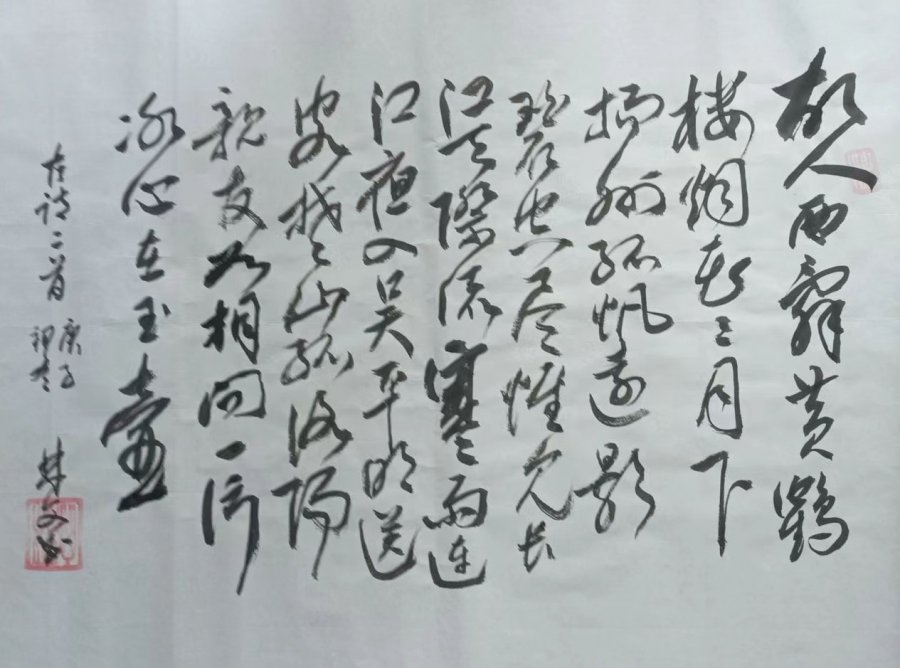 故人西辞黄鹤
楼烟花三月下
扬州孤帆远影
碧空尽惟见长
江天际流寒雨连
江夜入吴平明送
客楚山孤洛阳
亲友如相问一片
冰心在玉壶
古诗二首
庚子
初冬
林文书